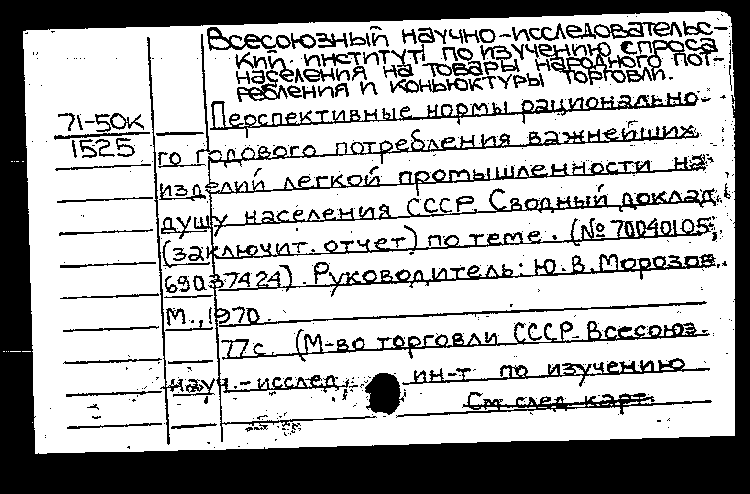 Всесоюзный научно-исследовательс-
кий институт по изучению спроса
населения на товары народного пот-
ребления и коньюктуры торговли.
71-50К
1525
Перспективные нормы рационально-
го годового потребления важнейших
изделий легкой промышленности на
душу населения СССР. Сводный доклад
(заключит. отчет) по теме. (№ 70040105;
69037424). Руководитель: Ю.В. Морозов.
М., 1970.
77с. (М-во торговли СССР. Всесоюз.
науч.-исслед. ин-т по изучению
См. след. карт.